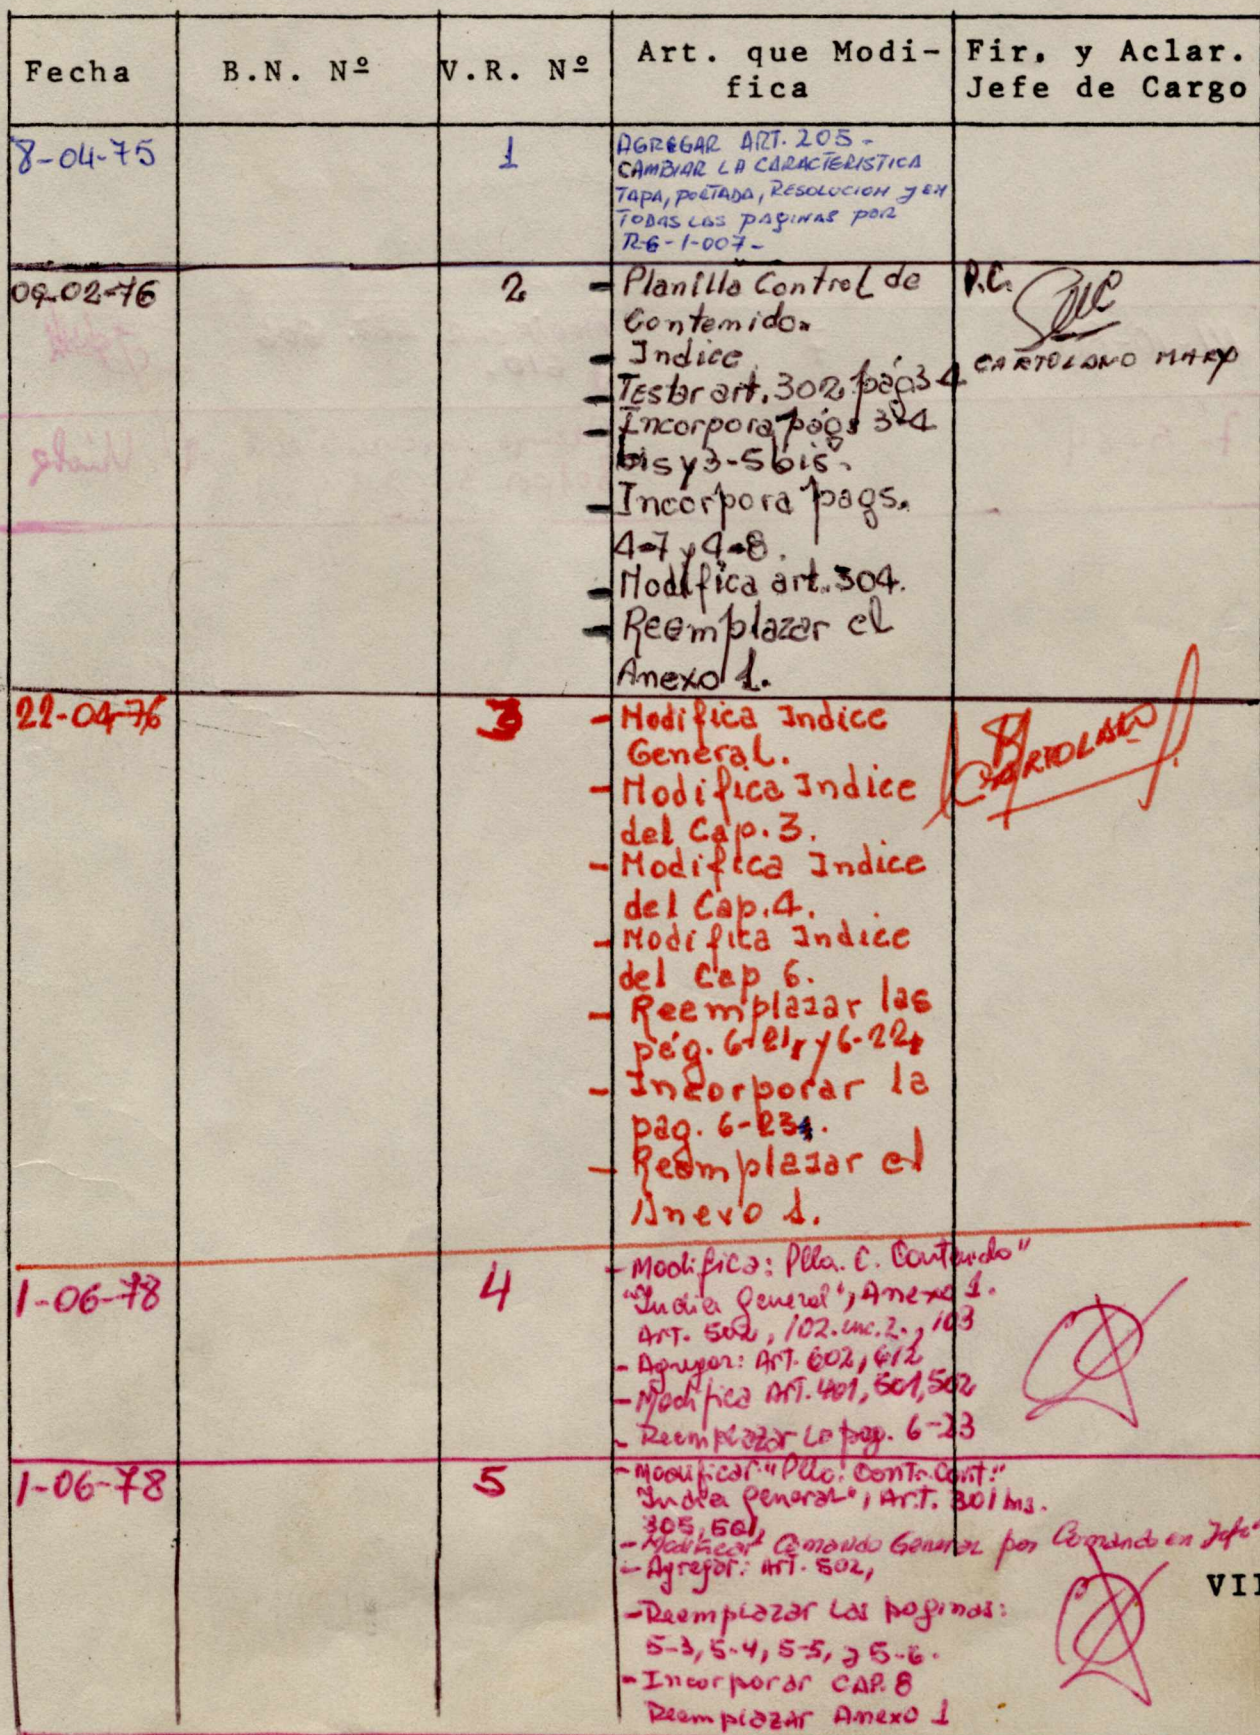 Fecha
B.N. Nº
V.R. Nº
Art. que Modi-
fica
Fir. y Aclar.
Jefe de Cargo
8-04-75
1
AGREGAR ART. 205 -
CAMBIAR LA CARACTERISTICA
TAPA, PORTADA, RESOLUCION y EN
TODAS LAS PAGINAS POR
R-6-1-007-
09-02-76
2
- Planilla Control de
Contenido.
- Indice
- Testar art. 302 pág 3-4
- Incorpora págs 3-4
bis y 3-5 bis.
- Incorpora pags.
4-7 y 4-8.
- Modifica art. 304.
- Reemplazar el
Anexo 1.
P.C.
CARTOLANO
22-04-76
3
- Modifica Indice
General.
- Modifica Indice
del Cap. 3.
- Modifica Indice
del Cap. 4.
- Modifica Indice
del Cap 6.
- Reemplazar las
pág. 6-21, y 6-22,
- Incorporar la
pag. 6-23.
- Reemplazar el
Anexo 1.
CARTOLANO
1-06-78
4
- Modifica: Plla. C. Contenido"
"Indice General", Anexo 1.
Art. 502, 102. inc. 2., 103
- Agregar: Art. 602, 612
- Modifica Art. 401, 501, 502
- Reemplazar la pag. 6-23
1-06-78
5
- Modificar "Plla. Contr. Cont."
Indice General", Art. 301
305, 501,
- Modificar Comando General por Comando en Jefe
- Agregar: Art. 502,
- Reemplazar las paginas:
5-3, 5-4, 5-5, y 5-6.
- Incorporar CAP. 8
Reemplazar Anexo 1
VII